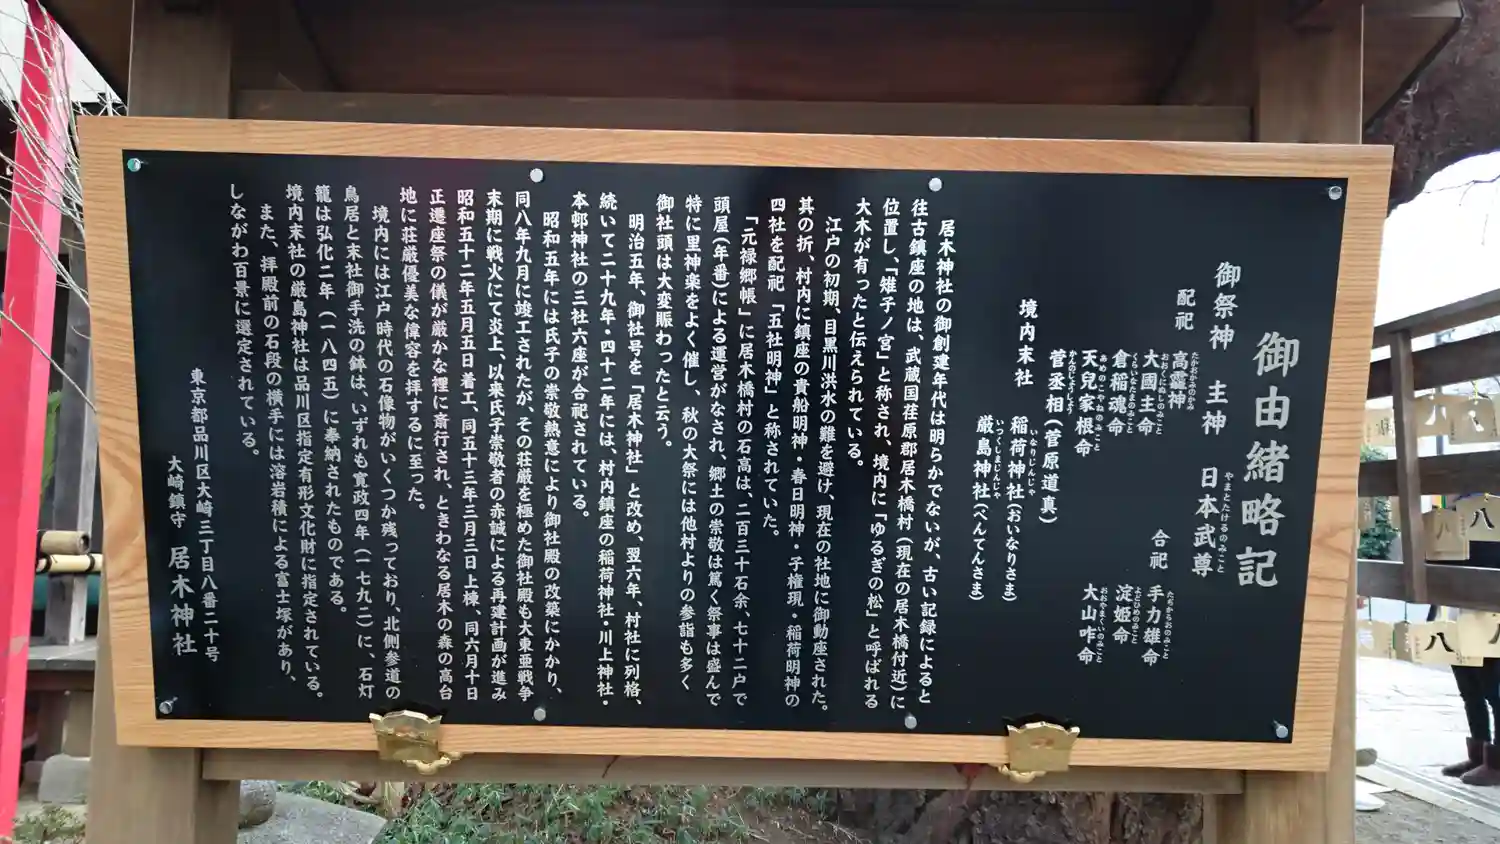 御由緒略記
御祭神　主神　日本武尊
やまとたけるのみこと
配祀　高龗神
たかおかみのかみ
大國主命
おおくにぬしのみこと
倉稲魂命
くらいなたまのみこと
天兒家根命
あめのこやねのみこと
菅丞相（菅原道真）
かんのしょうじょう
合祀　手力雄命
たぢからおのみこと
淀姫命
よどひめのみこと
大山咋命
おおやまくいのみこと
境内末社　稲荷神社（おいなりさま）
いなりじんじゃ
厳島神社（べんてんさま）
いつくしまじんじゃ
居木神社の御創建年代は明らかでないが、古い記録によると
往古鎮座の地は、武蔵国荏原郡居木橋村（現在の居木橋付近）に
位置し、「雉子ノ宮」と称され、境内に「ゆるぎの松」と呼ばれる
大木が有ったと伝えられている。
江戸の初期、目黒川洪水の難を避け、現在の社地に御動座された。
其の折、村内に鎮座の貴船明神・春日明神・子権現・稲荷明神の
四社を配祀「五社明神」と称されていた。
「元禄郷帳」に居木橋村の石高は、二百三十石余、七十二戸で
頭屋（年番）による運営がなされ、郷土の崇敬は篤く祭事は盛んで
特に里神楽をよく催し、秋の大祭には他村よりの参詣も多く
御社頭は大変賑わったと云う。
明治五年、御社号を「居木神社」と改め、翌六年、村社に列格、
続いて二十九年・四十二年には、村内鎮座の稲荷神社・川上神社・
本邨神社の三社六座が合祀されている。
昭和五年には氏子の崇敬熱意により御社殿の改築にかかり、
同八年九月に竣工されたが、その荘厳を極めた御社殿も大東亜戦争
末期に戦火にて炎上、以来氏子崇敬者の赤誠による再建計画が進み
昭和五十二年五月五日着工、同五十三年三月三日上棟、同六月十日
正遷座祭の儀が厳かな裡に斎行され、ときわなる居木の森の高台
地に荘厳優美な偉容を拝するに至った。
境内には江戸時代の石像物がいくつか残っており、北側参道の
鳥居と末社御手洗の鉢は、いずれも寛政四年（一七九二）に、石灯
籠は弘化二年（一八四五）に奉納されたものである。
境内末社の厳島神社は品川区指定有形文化財に指定されている。
また、拝殿前の石段の横手には溶岩積による富士塚があり、
しながわ百景に選定されている。
東京都品川区大崎三丁目八番二十号
大崎鎮守　居木神社
八
八
八